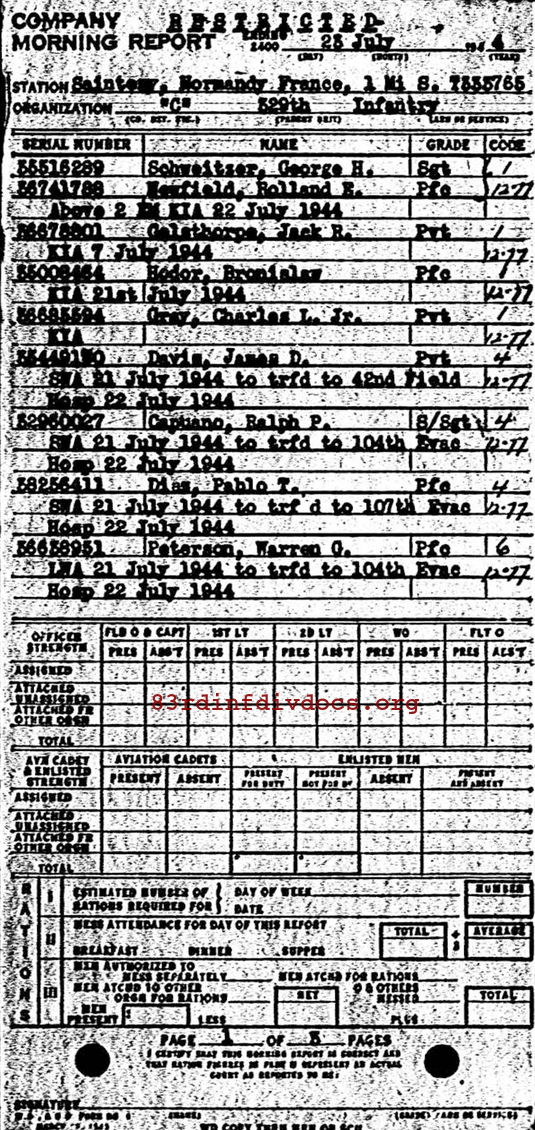 COMPANY RESTRICTED
MORNING REPORT ENDING 2400 23 July 194 4
(DAY) (MONTH) (YEAR)
STATION Sainteny, Normandy France, 1 Mi S. T335765
ORGANIZATION "C" 329th Infantry
(CO. DET. ETC.) (PARENT UNIT) (ARM OR SERVICE)
SERIAL NUMBER NAME GRADE CODE
Schweitzer, George H. Sgt 1
36741788 Newfield, Rolland E. Pfc 12-77
Above 2 EM KIA 22 July 1944
Galathorpe, Jack R. Pvt 1
KIA 7 July 1944 12-77
35008464 Hodor, Bronislaw Pfc 1
KIA 21st July 1944 12-77
Gray, Charles L. Jr. Pvt 1
KIA 12-77
Davis, James D. Pvt 4
SWA 21 July 1944 to trfd to 42nd Field 12-77
Hosp 22 July 1944
32960027 Capuano, Ralph P. S/Sgt 4
SWA 21 July 1944 to trfd to 104th Evac 12-77
Hosp 22 July 1944
38256411 Diaz, Pablo T. Pfc 4
SWA 21 July 1944 to trf d to 107th Evac 12-77
Hosp 22 July 1944
36638951 Peterson, Warren G. Pfc 6
LWA 21 July 1944 to trfd to 104th Evac 12-77
Hosp 22 July 1944
OFFICER STRENGTH FLD O & CAPT 1ST LT 2D LT WO FLT O
PRES ABS'T PRES ABS'T PRES ABS'T PRES ABS'T PRES ABS'T
ASSIGNED
ATTACHED UNASSIGNED
83rdinfdivdocs.org
ATTACHED FR OTHER ORGN
TOTAL
AVN CADET & ENLISTED STRENGTH AVIATION CADETS ENLISTED MEN
PRESENT ABSENT PRESENT FOR DUTY PRESENT NOT FOR DY ABSENT PRESENT AND ABSENT
ASSIGNED
ATTACHED UNASSIGNED
ATTACHED FR OTHER ORGN
TOTAL
RATIONS
I ESTIMATED NUMBER OF RATIONS REQUIRED FOR { DAY OF WEEK NUMBER
DATE
II MESS ATTENDANCE FOR DAY OF THIS REPORT TOTAL ÷ 3 AVERAGE
BREAKFAST DINNER SUPPER
III MEN AUTHORIZED TO MESS SEPARATELY MEN ATCHD FOR RATIONS
MEN ATCHD TO OTHER ORGN FOR RATIONS NET O & OTHERS MESSED TOTAL
MEN PRESENT LESS PLUS
PAGE 1 OF 3 PAGES
I CERTIFY THAT THIS MORNING REPORT IS CORRECT AND
THAT RATION FIGURES IN PART II REPRESENT AN ACTUAL
COUNT AS REPORTED TO ME:
SIGNATURE